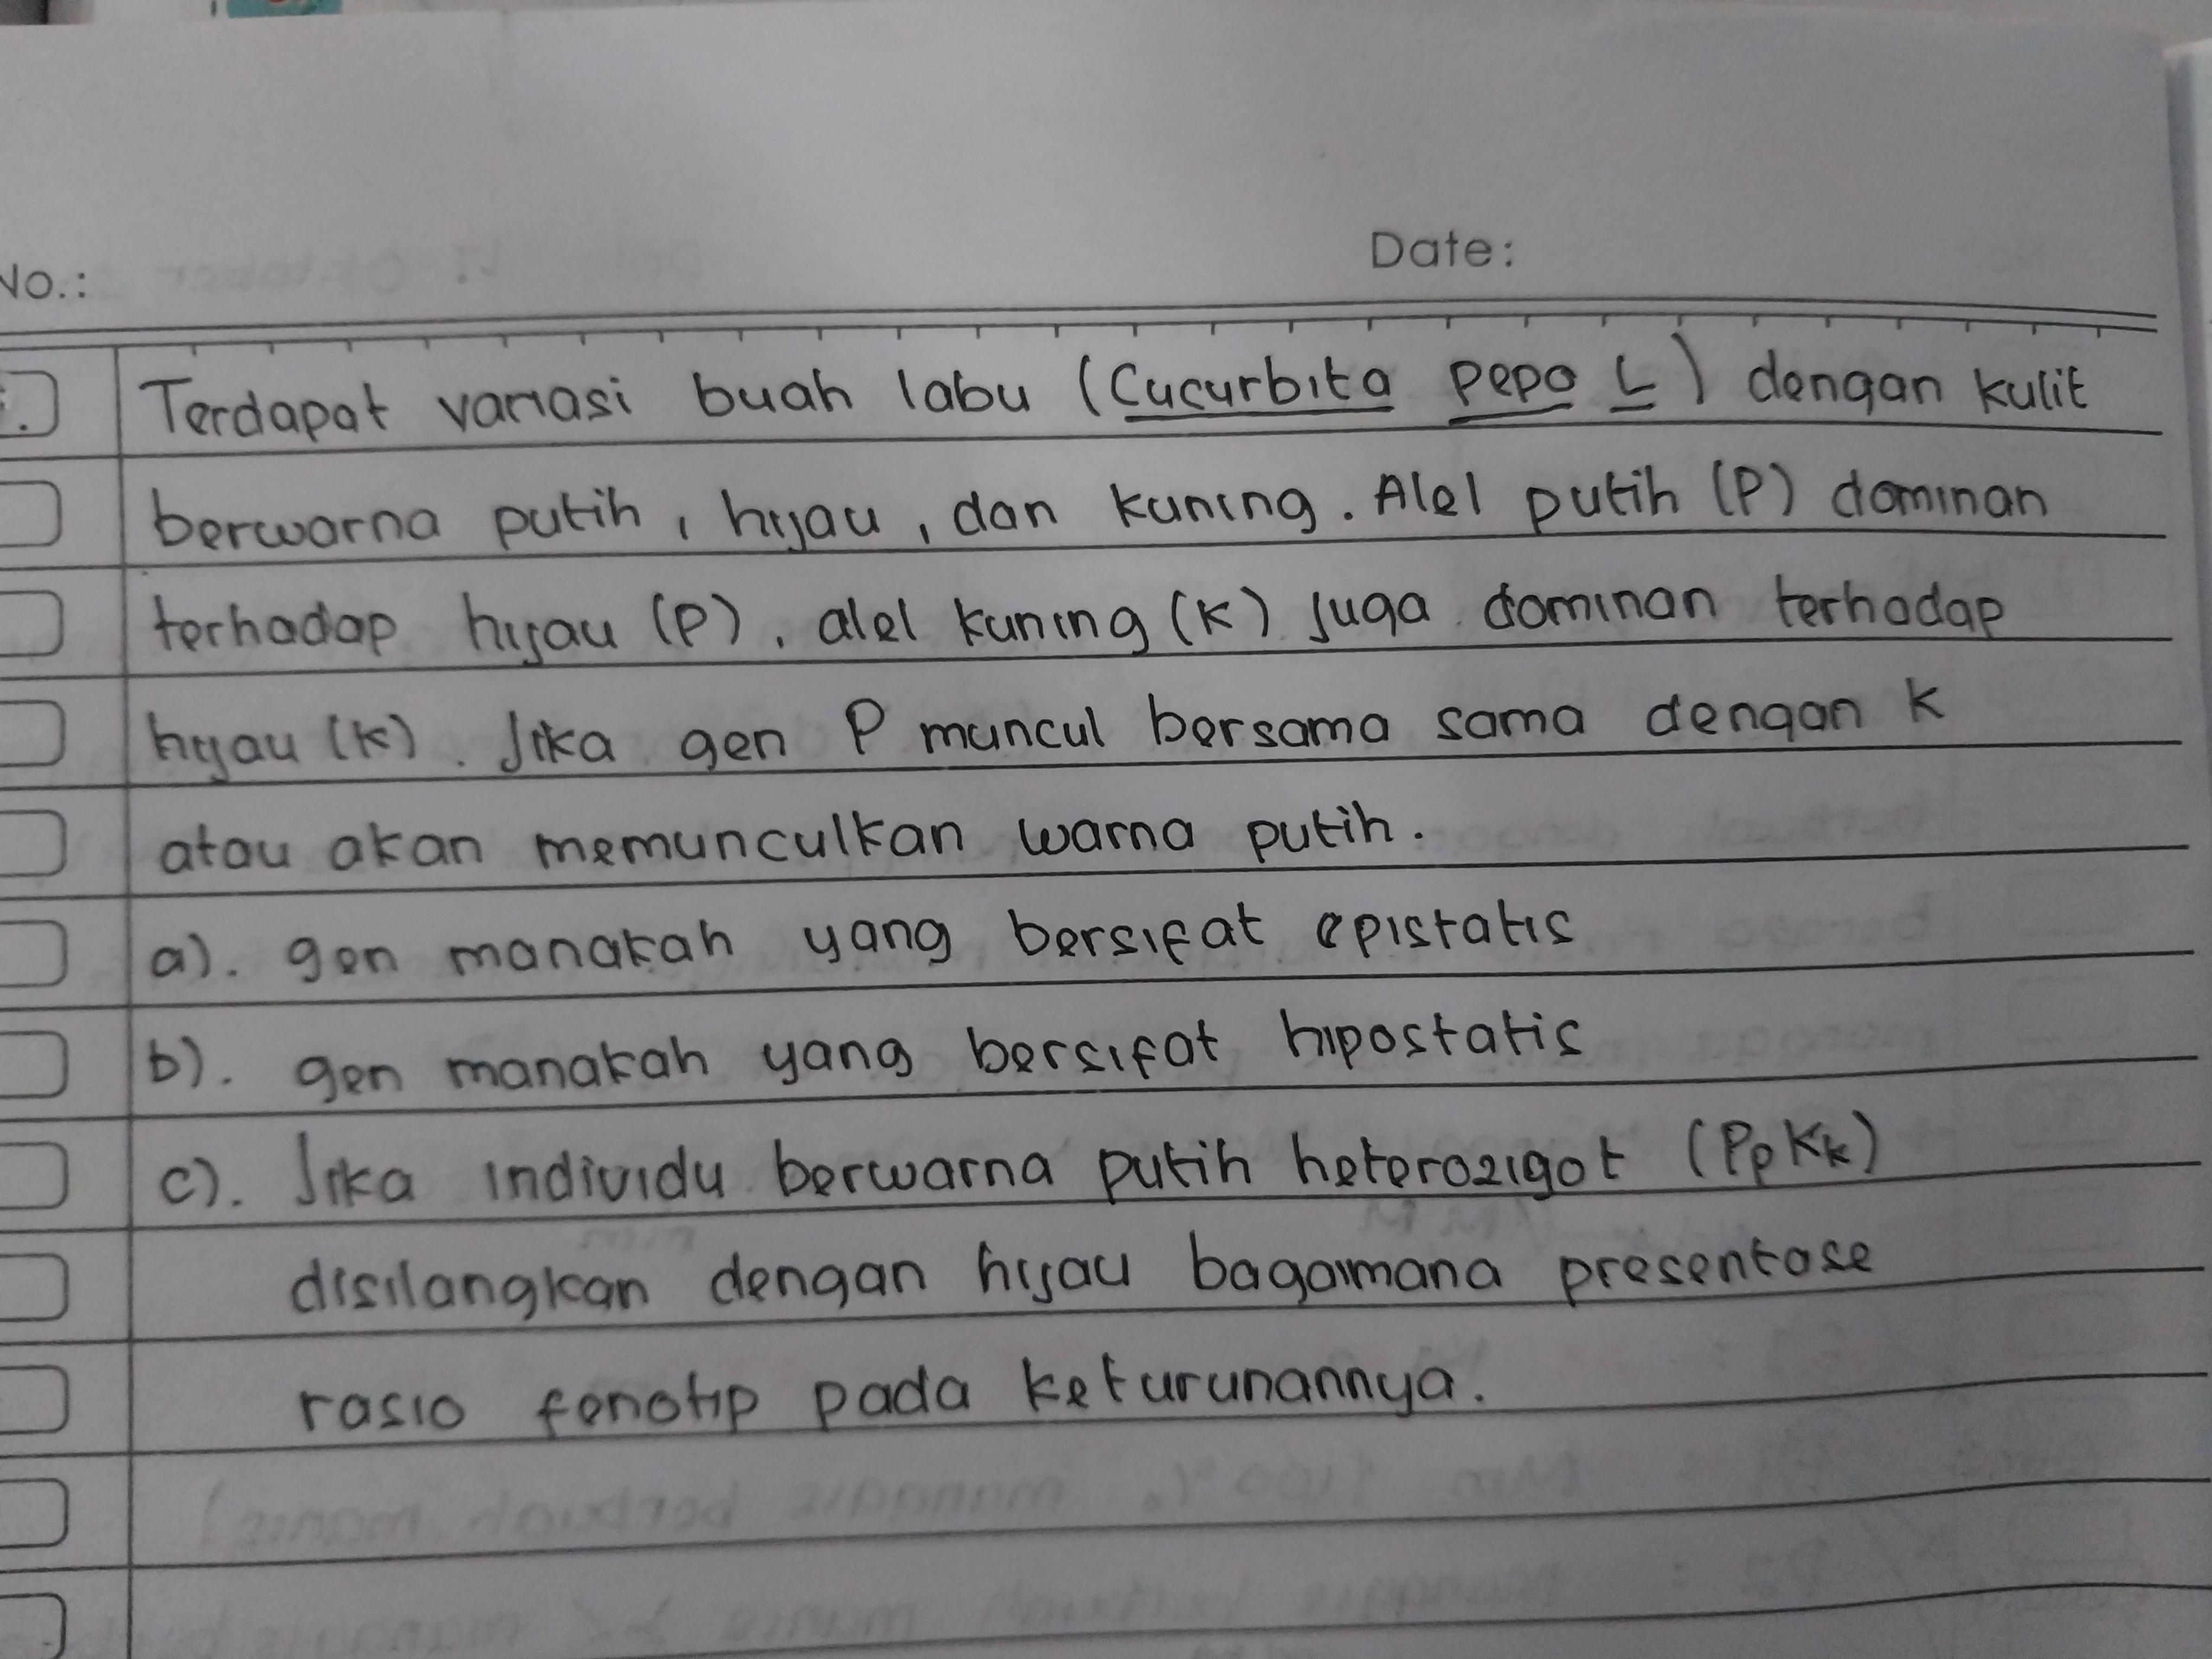 No.:
Date:
Terdapat variasi buah labu (Cucurbita pepo L) dengan kulit
berwarna putih, hijau, dan kuning. Alel putih (P) dominan
terhadap hijau (p), alel kuning (K) juga dominan terhadap
hijau (k). Jika gen P muncul bersama sama dengan K
atau akan memunculkan warna putih.
a). gen manakah yang bersifat epistatis
b). gen manakah yang bersifat hipostatis
c). Jika individu berwarna putih heterozigot (PpKk)
disilangkan dengan hijau bagaimana presentase
rasio fenotip pada keturunannya.